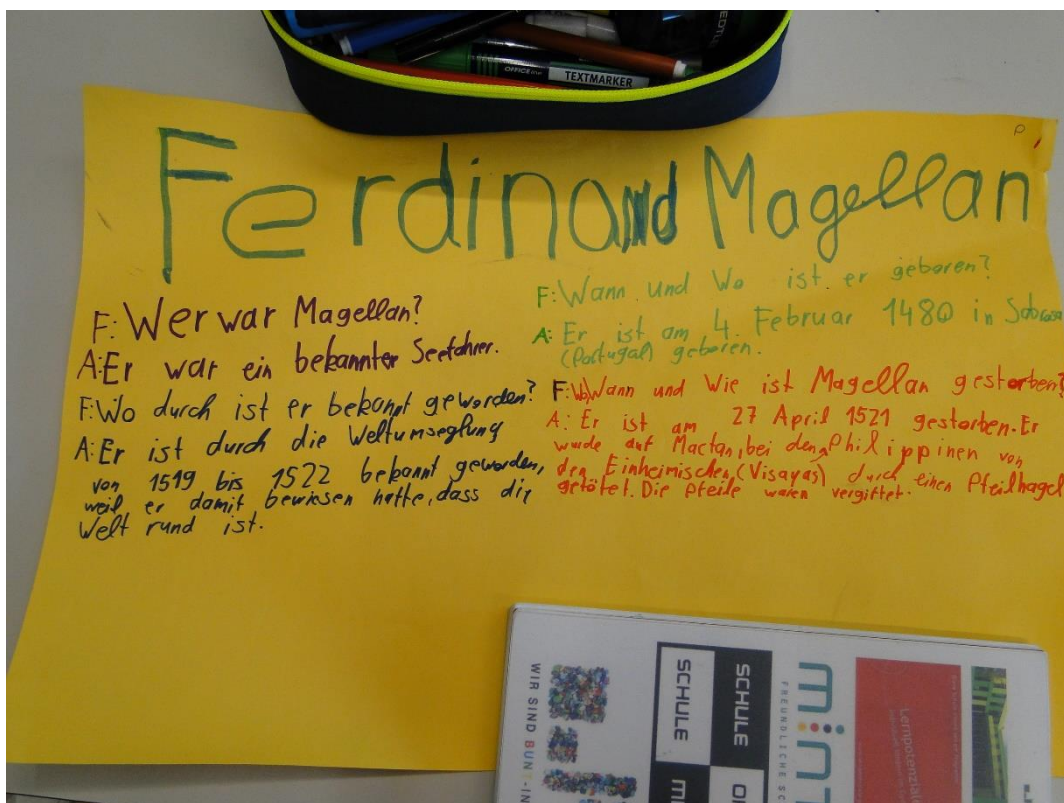 OFFICE line TEXTMARKER
Ferdinand Magellan
F: Wer war Magellan?
A: Er war ein bekannter Seefahrer.
F: Wo durch ist er bekannt geworden?
A: Er ist durch die Weltumseglung
von 1519 bis 1522 bekannt geworden,
weil er damit bewiesen hatte, dass die
Welt rund ist.
F: Wann und Wo ist er geboren?
A: Er ist am 4. Februar 1480 in Sabrosa
(Portugal) geboren.
F: Wann und Wie ist Magellan gestorben?
A: Er ist am 27 April 1521 gestorben. Er
wurde auf Mactan, bei den Philippinen von
den Einheimischen (Visayas) durch einen Pfeilhagel
getötet. Die Pfeile waren vergiftet.
WIR SIND BUNT-IN
SCHULE
SCHULE
MINT
FREUNDLICHE SC
Lernpotenziale